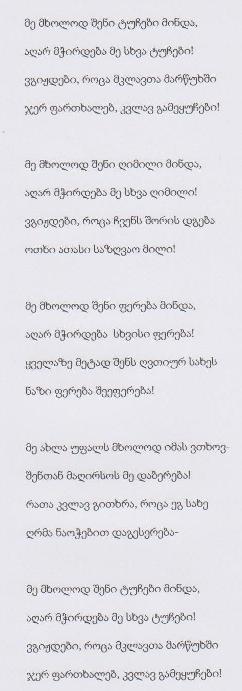 მე მხოლოდ შენი ტუჩები მინდა,
აღარ მჭირდება მე სხვა ტუჩები!
ვგიჟდები, როცა მკლავთა მარწუხში
ჯერ ფართხალებ, კვლავ გამეყუჩები!
მე მხოლოდ შენი ღიმილი მინდა,
აღარ მჭირდება მე სხვა ღიმილი!
ვგიჟდები, როცა ჩვენს შორის დგება
ოთხი ათასი საზღვაო მილი!
მე მხოლოდ შენი ფერება მინდა,
აღარ მჭირდება სხვისი ფერება!
ყველაზე მეტად შენს ღვთიურ სახეს
ნაზი ფერება შეეფერება!
მე ახლა უფალს მხოლოდ იმას ვთხოვ-
შენთან მაღირსოს მე დაბერება!
რათა კვლავ გითხრა, როცა ეგ სახე
ღრმა ნაოჭებით დაგესერება-
მე მხოლოდ შენი ტუჩები მინდა,
აღარ მჭირდება მე სხვა ტუჩები!
ვგიჟდები, როცა მკლავთა მარწუხში
ჯერ ფართხალებ, კვლავ გამეყუჩები!